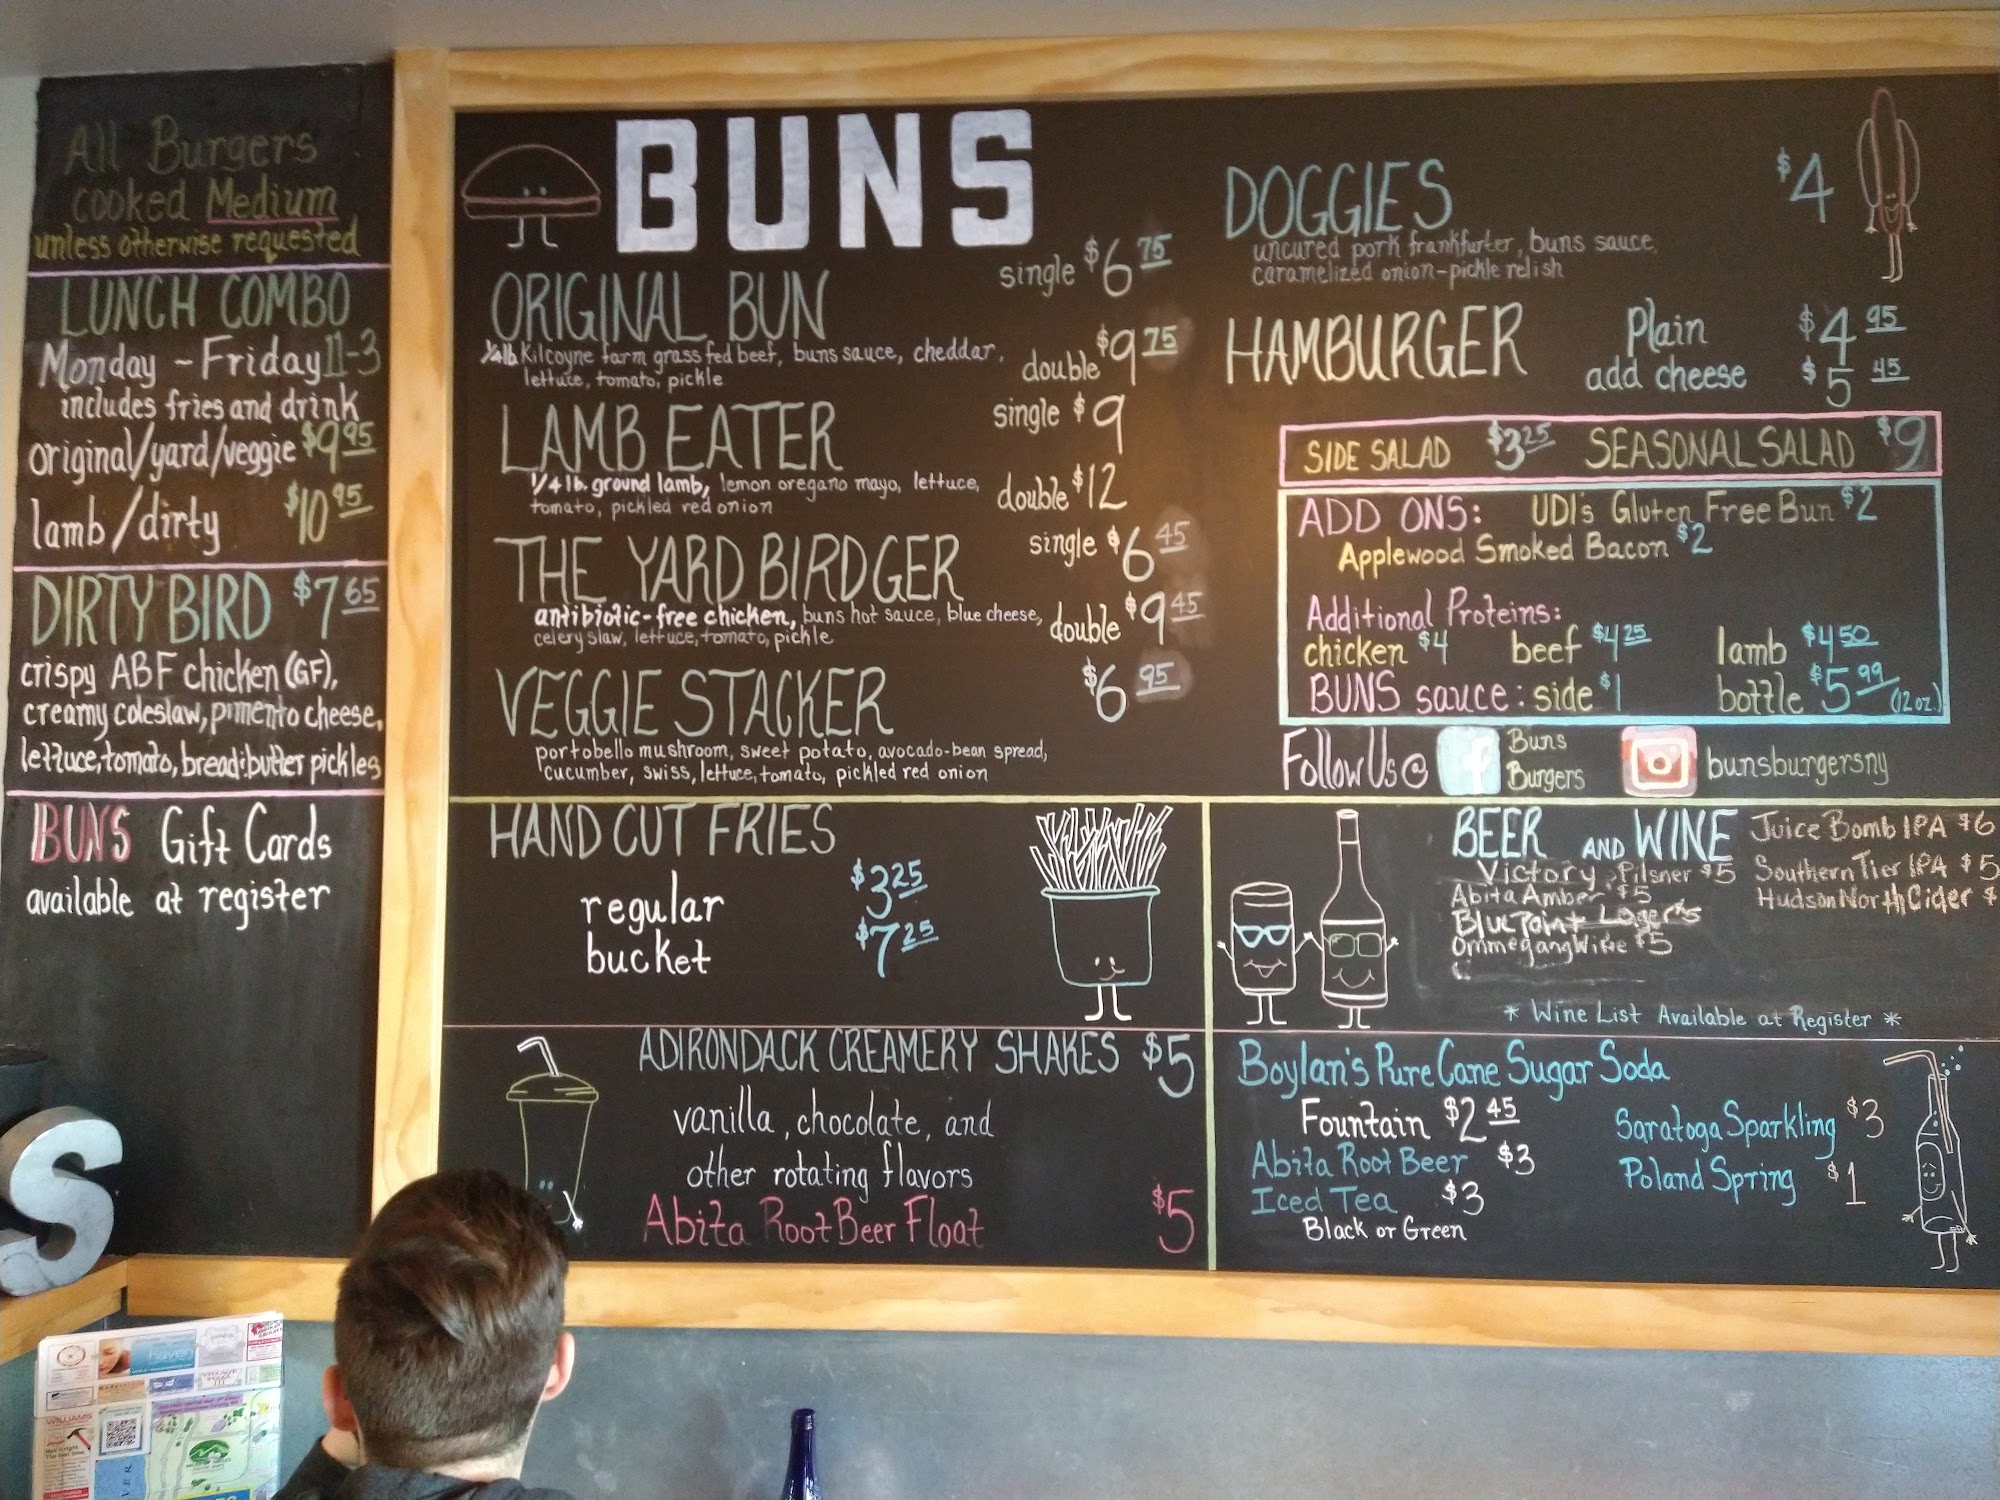 All Burgers
cooked Medium
unless otherwise requested
LUNCH COMBO
Monday - Friday 11-3
includes fries and drink
original/yard/veggie $9.95
lamb/dirty $10.95
DIRTY BIRD $7.65
crispy ABF chicken (GF),
creamy coleslaw, pimento cheese,
lettuce, tomato, bread & butter pickles
BUNS Gift Cards
available at register
BUNS
ORIGINAL BUN single $6.75
1/4 lb Kilcoyne farm grass fed beef, buns sauce, cheddar, double $9.75
lettuce, tomato, pickle
LAMB EATER single $9
1/4 lb. ground lamb, lemon oregano mayo, lettuce, double $12
tomato, pickled red onion
THE YARD BIRDGER single $6.45
antibiotic-free chicken, buns hot sauce, blue cheese, double $9.45
celery slaw, lettuce, tomato, pickle
VEGGIE STACKER $6.95
portobello mushroom, sweet potato, avocado-bean spread,
cucumber, swiss, lettuce, tomato, pickled red onion
DOGGIES $4
uncured pork frankfurter, buns sauce,
caramelized onion-pickle relish
HAMBURGER Plain $4.95
add cheese $5.45
SIDE SALAD $3.25 SEASONAL SALAD $9
ADD ONS: UDI's Gluten Free Bun $2
Applewood Smoked Bacon $2
Additional Proteins:
chicken $4 beef $4.25 lamb $4.50
BUNS sauce: side $1 bottle $5.99 (12oz.)
Follow Us @ f Buns Burgers bunsburgersny
HAND CUT FRIES
regular $3.25
bucket $7.25
BEER AND WINE
Victory Pilsner $5
Abita Amber $5
Blue Point Lager $5
Ommegang Wite $5
Juice Bomb IPA $6
Southern Tier IPA $5
Hudson North Cider $
* Wine List Available at Register *
ADIRONDACK CREAMERY SHAKES $5
vanilla, chocolate, and
other rotating flavors
Abita Root Beer Float $5
Boylan's Pure Cane Sugar Soda
Fountain $2.45
Abita Root Beer $3
Iced Tea $3
Black or Green
Saratoga Sparkling $3
Poland Spring $1
S
haven
WILLIAMS